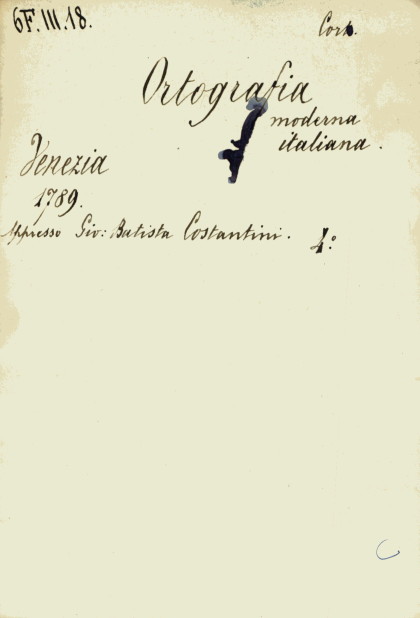 6F. III. 18.
Cors.
Ortografia
moderna
italiana.
Venezia
1789.
Appresso Gio: Batista Costantini. 4.º